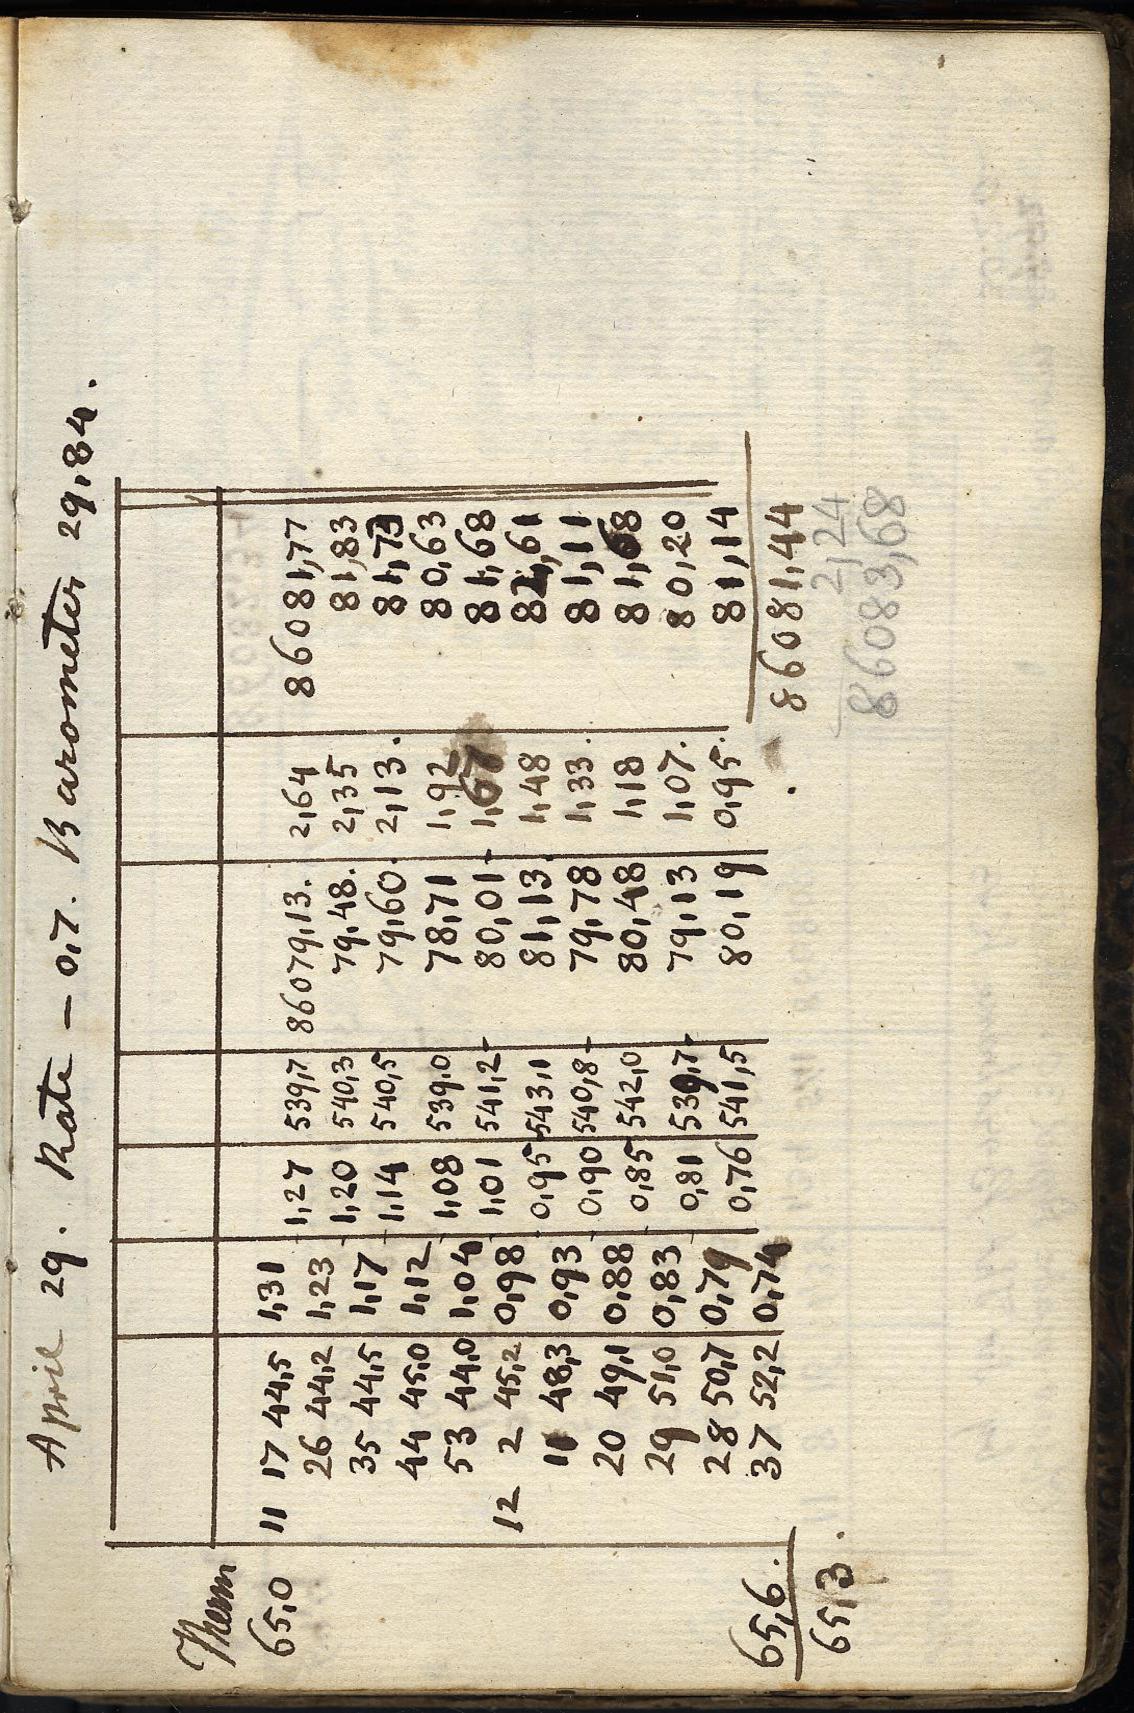 April 29. Rate – 0,7. Barometer 29,84.
Therm
65,0 11 17 44,5 1,31
1,27 539,7 86079,13. 2,64 86081,77
26 44,2 1,23
1,20 540,3 79,48. 2,35 81,83
35 44,5 1,17
1,14 540,5 79,60. 2,13. 81,73
44 45,0 1,12
1,08 539,0 78,71 1,92 80,63
53 44,0 1,04
1,01 541,2 80,01 1,67 81,68
12 2 45,2 0,98
0,95 543,1 81,13. 1,48 82,61
11 48,3 0,93
0,90 540,8 79,78 1,33. 81,11
20 49,1 0,88
0,85 542,0 80,48 1,18 81,68
29 51,0 0,83
0,81 539,7 79,13 1,07. 80,20
28 50,7 0,79
0,76 541,5 80,19 0,95. 81,14
65,6. 37 52,2 0,74
65,3. 86081,44
2,24
86083,68